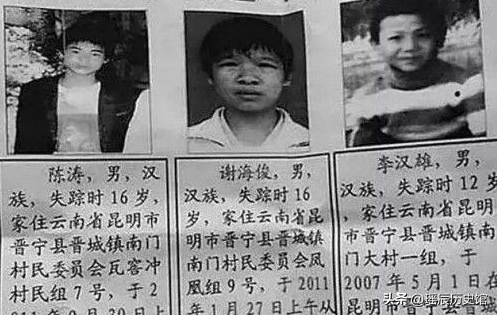 陈涛，男，汉
族，失踪时16岁，
家住云南省昆明市
晋宁县晋城镇南门
村民委员会瓦窑冲
村民组7号，于2
谢海俊，男，
汉族，失踪时16
岁，家住云南省昆
明市晋宁县晋城镇
南门村民委员会凤
凰组9号，于2011
年1月27日上午从
李汉雄，男，
汉族，失踪时12岁
，家住云南省昆明市
晋宁县晋城镇南
门大村一组，于
2007年5月1日在
昆明市晋宁县晋
头条@瑾辰历史馆